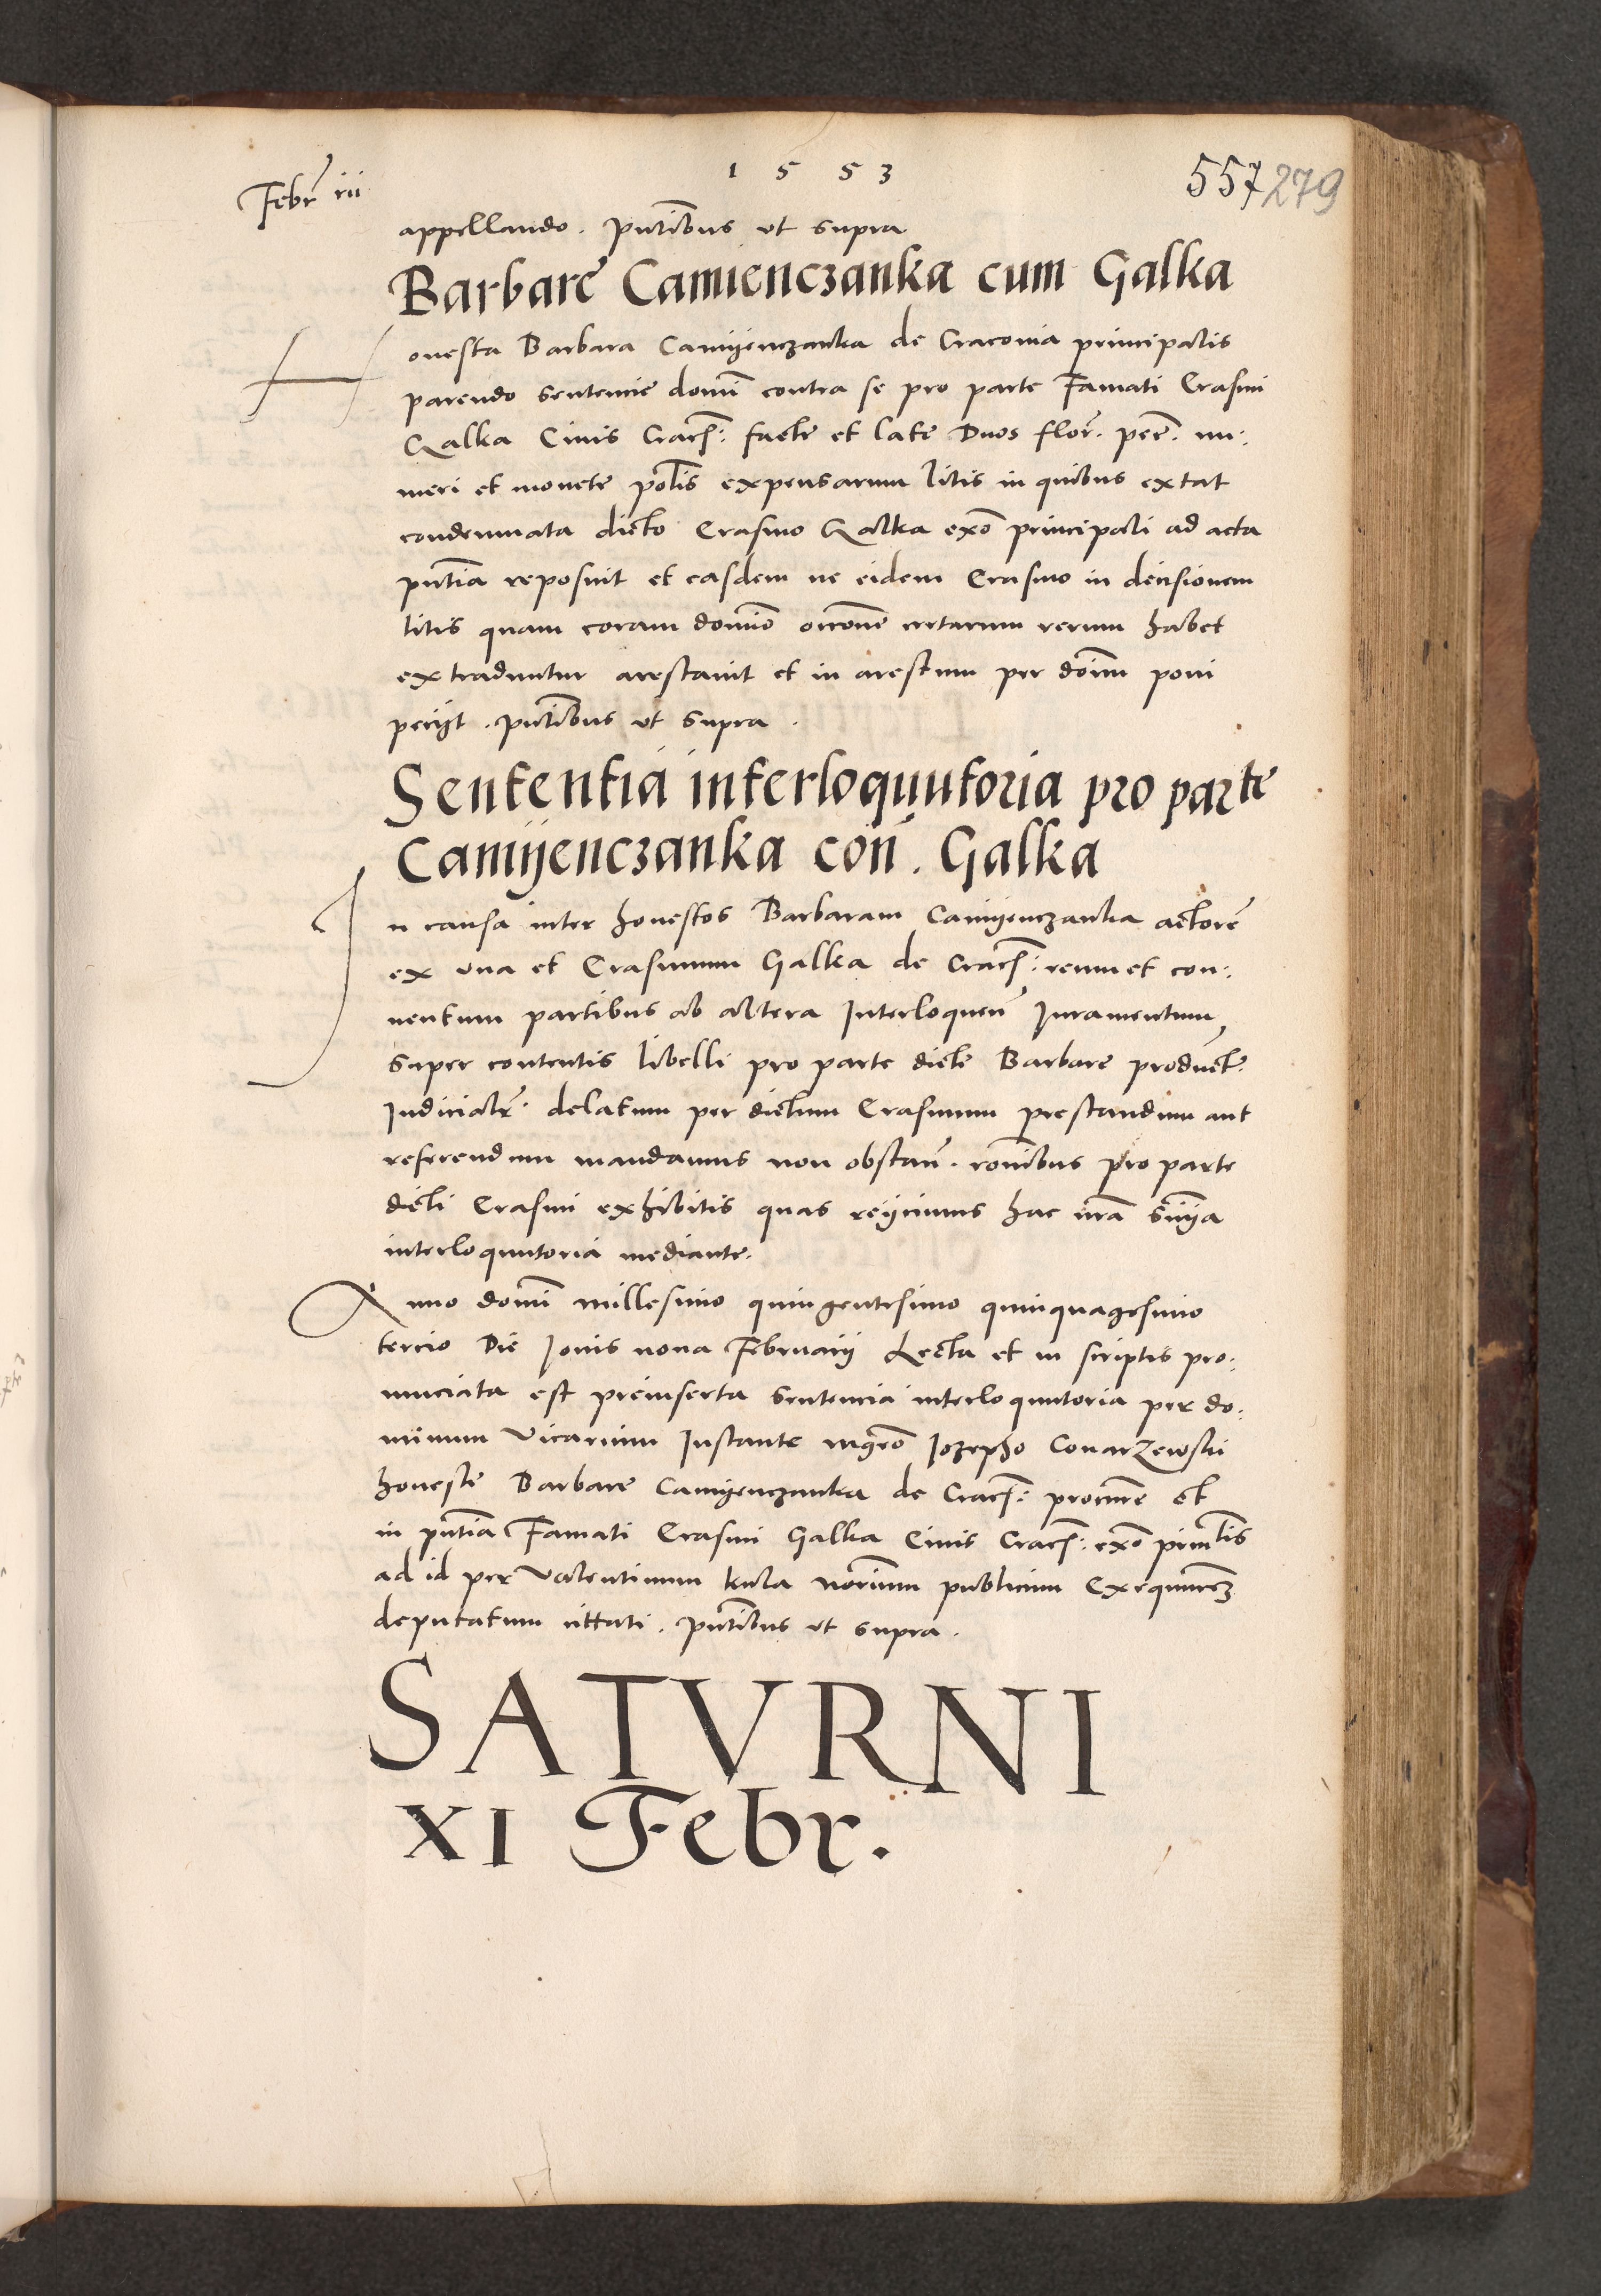 1 5 5 3
557 279
Febr
appellando. pntibus ut supra
Barbare Camienczanka cum Galka
Honesta Barbara Camyenczanka de Cracovia principalis
parendo sentencie domi contra se pro parte Famati Erasmi
Galka Civis Crac: facte et late Duos flor. pec. nu:
meri et monete polis expensarum litis in quibus extat
condemnata dicto Erasmo Galka exo principali ad acta
pntia reposuit et easdem ne eidem Erasmo in decisionem
litis quam coram domino certarum rerum habet
extradantur arestavit et in arestum per donm poni
peciit. pntibus ut supra.
Sententia interloquutoria pro parte
Camyenczanka con. Galka
In causa inter honestos Barbaram Camyenczanka actorem
ex una et Erasmum Galka de Crac: reum et con:
ventum partibus ab altera Interloquen Juramentum
super contentis libelli pro parte dicte Barbare product.
Judicialr. delatum per dictum Erasmum prestandum aut
referendum mandamus non obstan. ronibus pro parte
dicti Erasmi exhibitis quas reijcimus hac nra snija
interloquutoria mediante.
Anno domi millesimo quingentesimo quinquagesimo
tercio Die Jovis nona Februarij Lecta et in scriptis pro:
nunciata est preinserta sentencia interloquutoria per do:
minum Vicarium Instante mgro Jozepho Conarzewski
honeste Barbare Camyenczanka de Crac: procure et
in pntia Famati Erasmi Galka Civis Crac: exo principalis
ad id per Valentinum Kula norium publicum
deputatum cittati. pntibus ut supra.
SATVRNI
XI Febr.